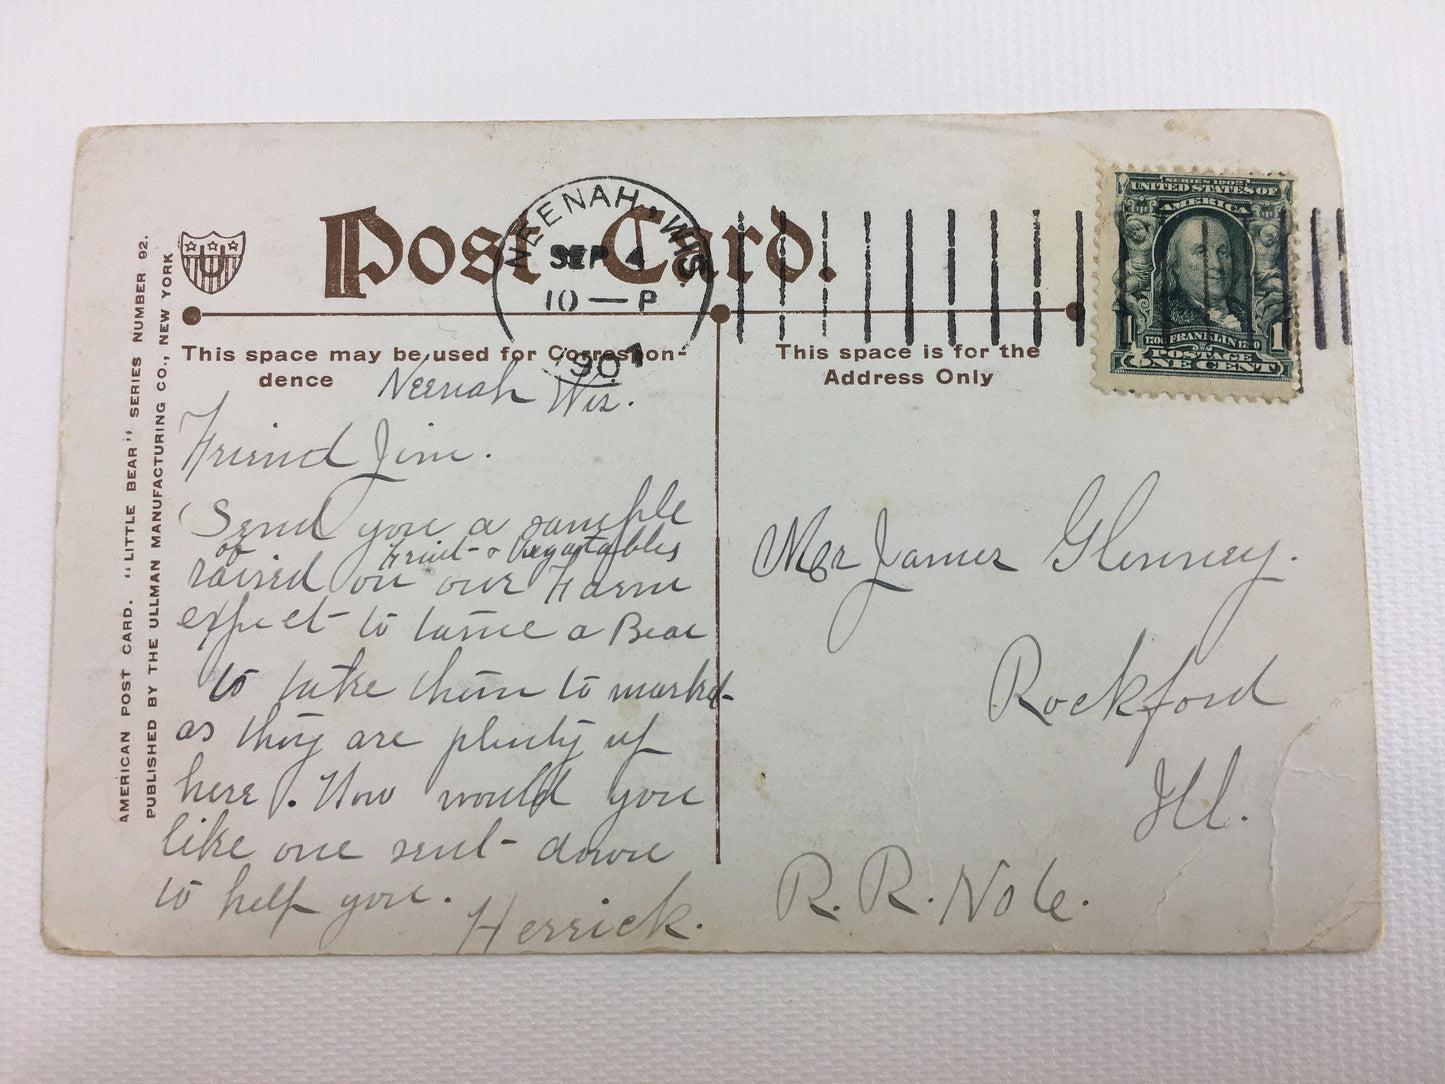 AMERICAN POST CARD. "LITTLE BEAR" SERIES NUMBER 92.
PUBLISHED BY THE ULLMAN MANUFACTURING CO., NEW YORK
U
Post Card.
NEENAH, WIS.
SEP 4
10 — P
1907
SERIES 1902
UNITED STATES OF
AMERICA
1706 FRANKLIN 1790
POSTAGE
1 1
ONE CENT
This space may be used for Correspon-
dence
This space is for the
Address Only
Neenah Wis.
Friend Jim.
Send you a sample
of Fruit & Vegatables
raised on our Farm
expect to tame a Bear
to take them to market
as they are plenty up
here. How would you
like one sent down
to help you.
Herrick.
Mr James Glenney.
Rockford
Ill.
R. R. No 6.